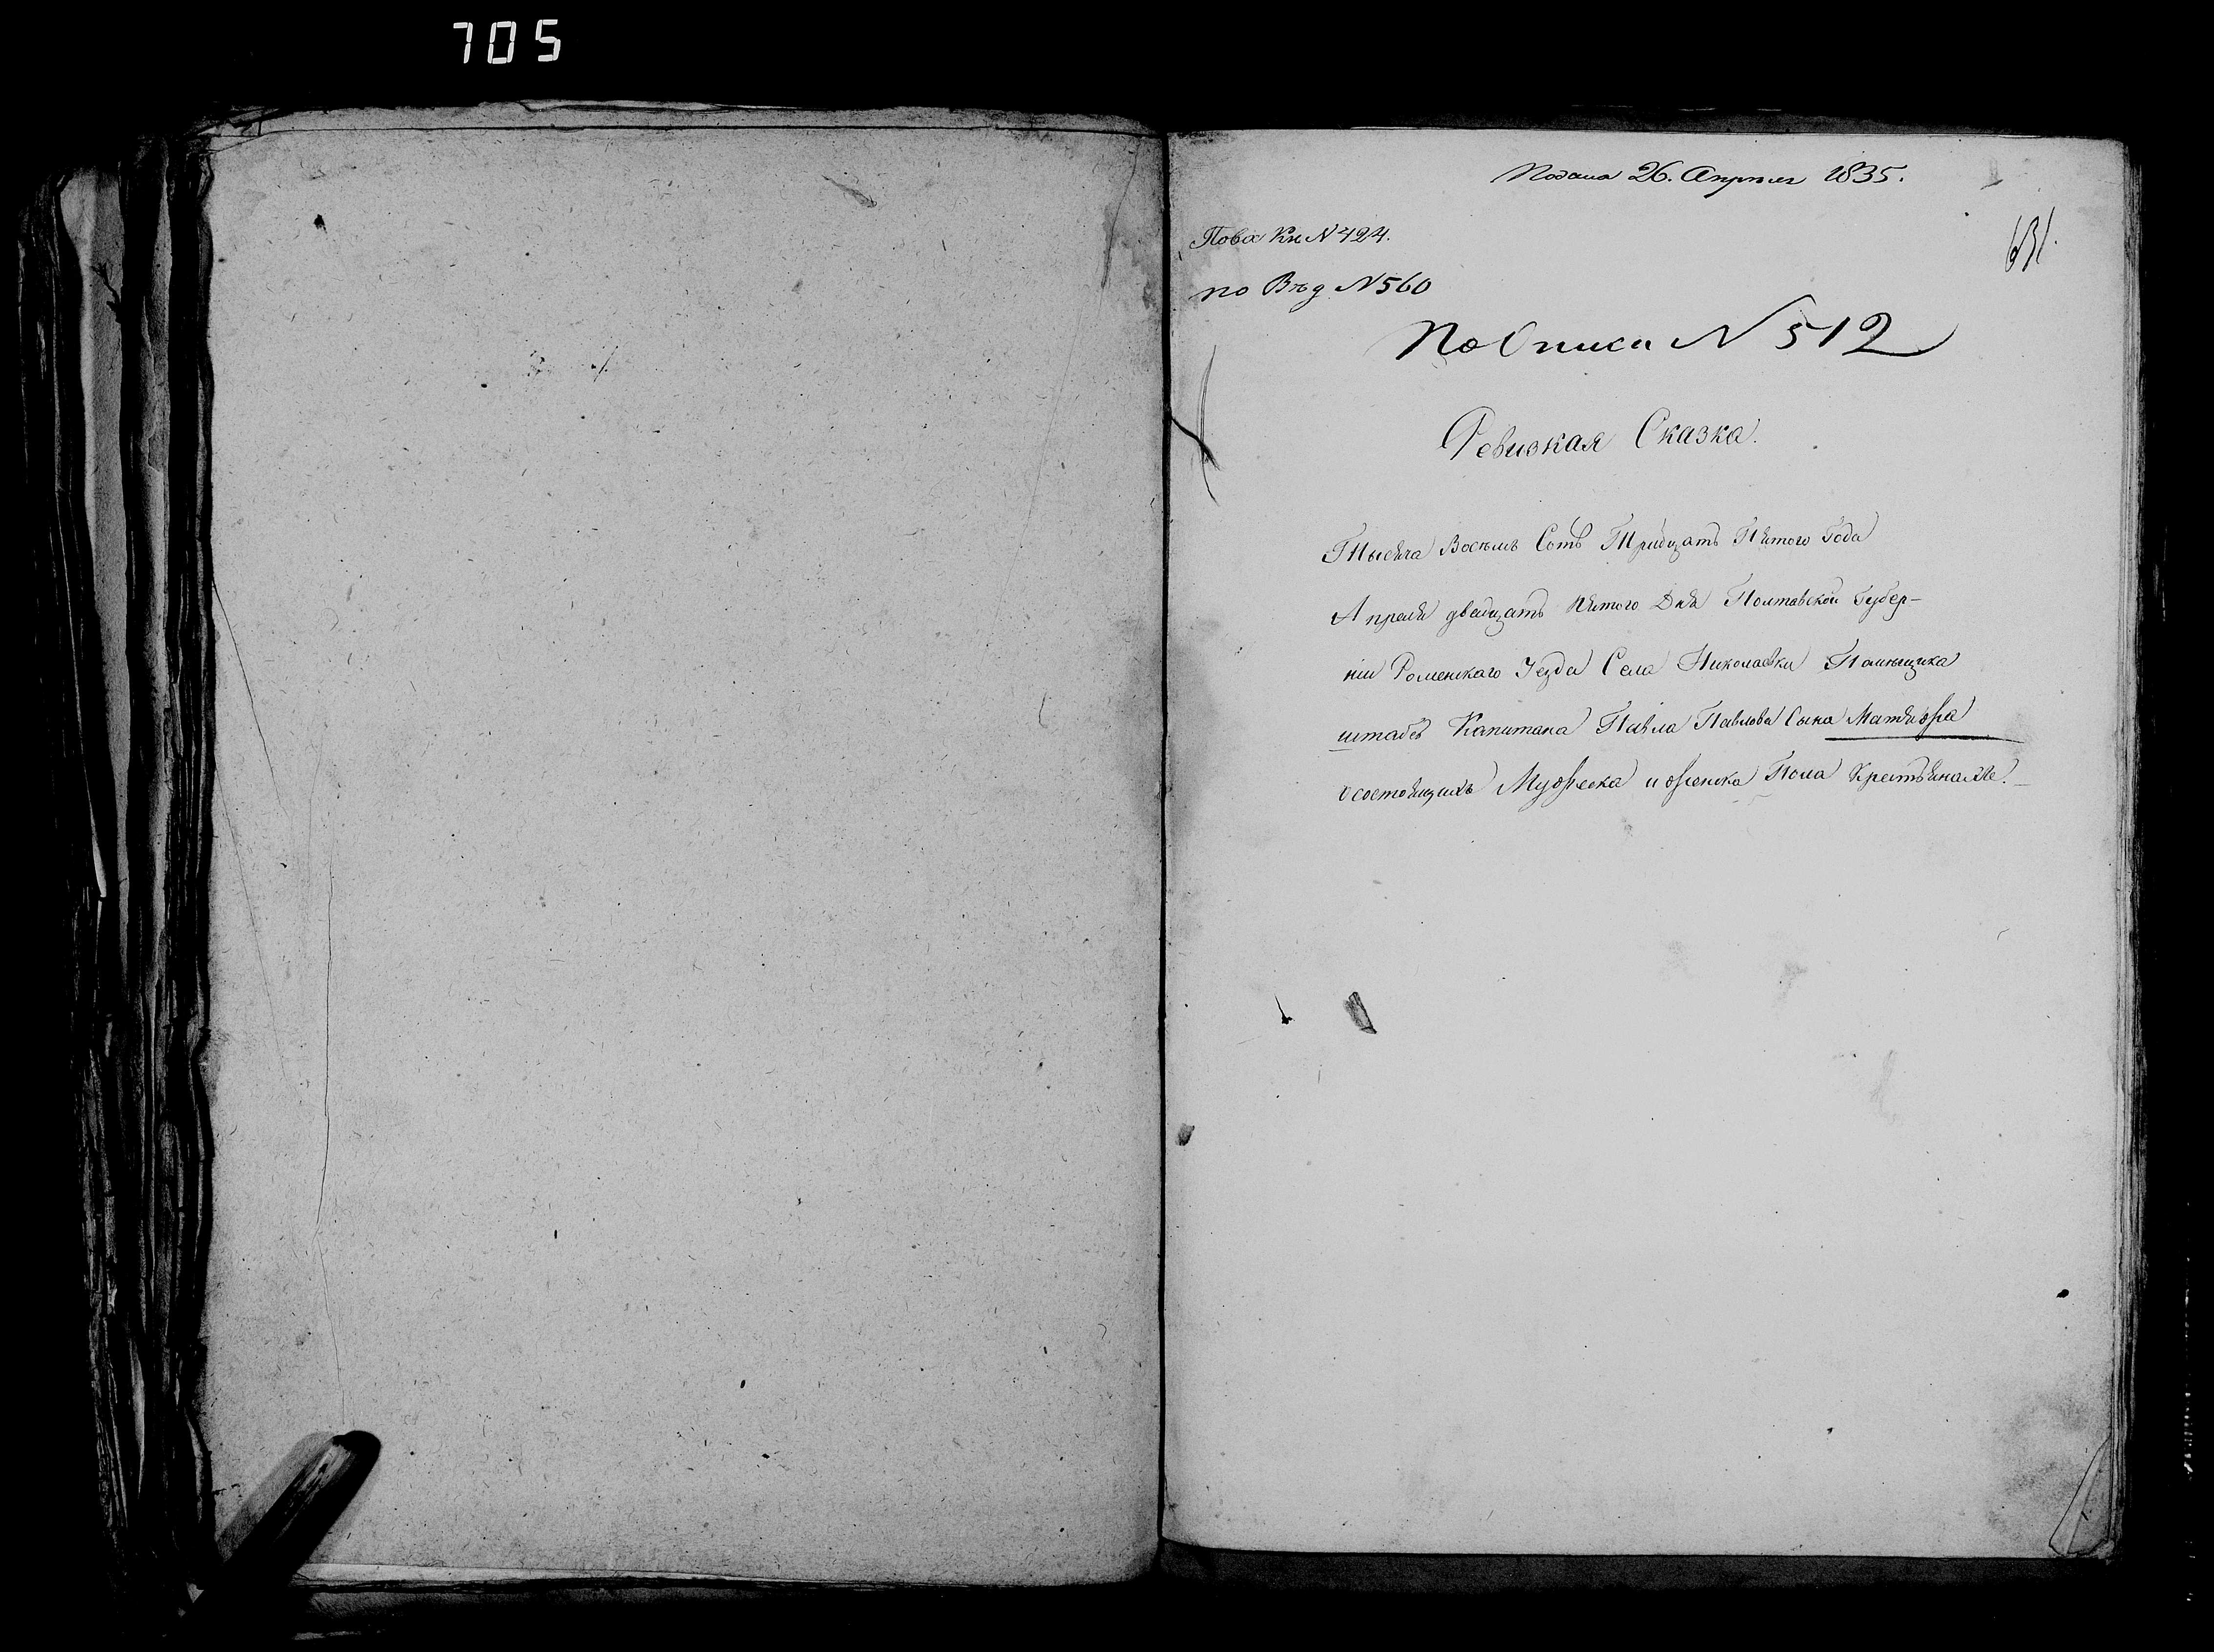 705
Подана 26. Апреля 1835.
631.
По вх Кн N 424.
по Вѣд N 560
По Описи N 512
Ревизкая Сказка.
Тысяча Восемь Сотъ Тридцать Пятого Года
Апреля двадцать пятого Дня Полтавской Губер-
нии Роменскаго Уезда Села Николаевки Помещика
штабсъ Капитана Павла Павлова Сына
о состоящихъ Мужеска и женска Пола Крестьянахъ.